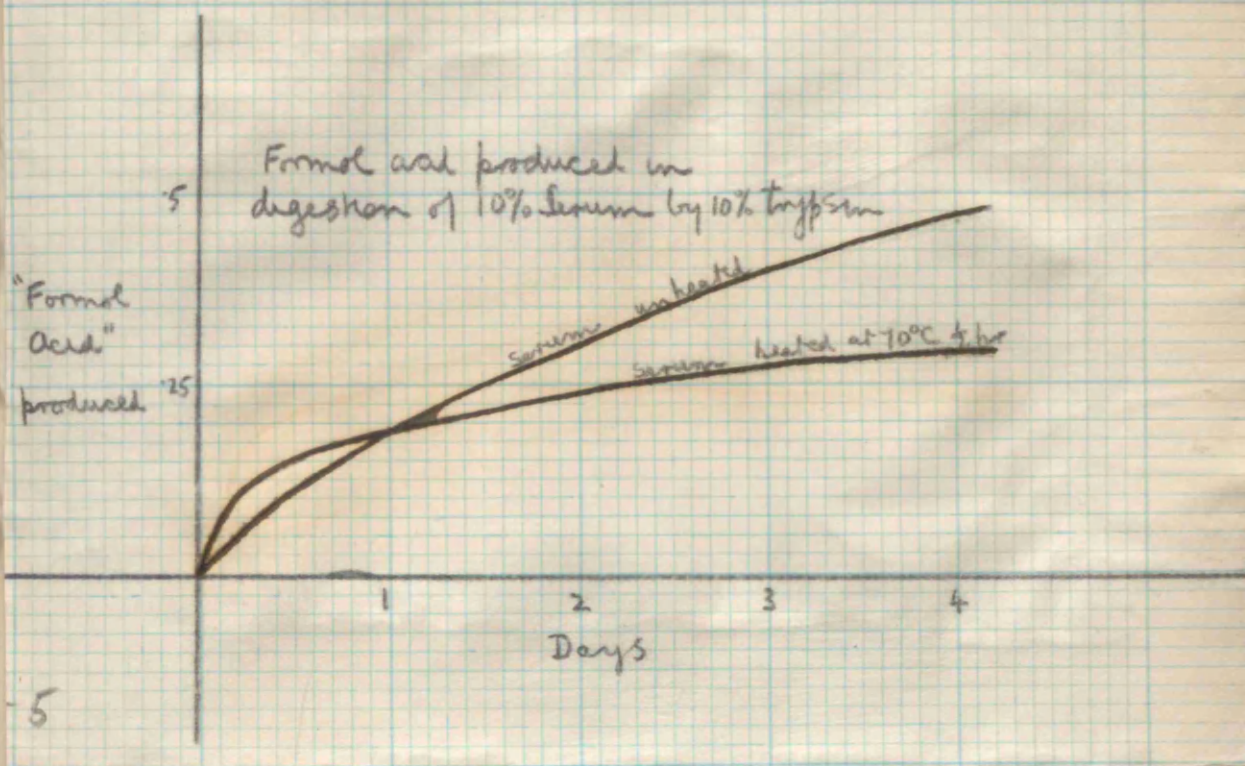 Formol acid produced in
digestion of 10% Serum by 10% trypsin
.5
"Formol
Acid"
produced
.25
serum unheated
serum heated at 70°C ½ hr
1 2 3 4
Days
5